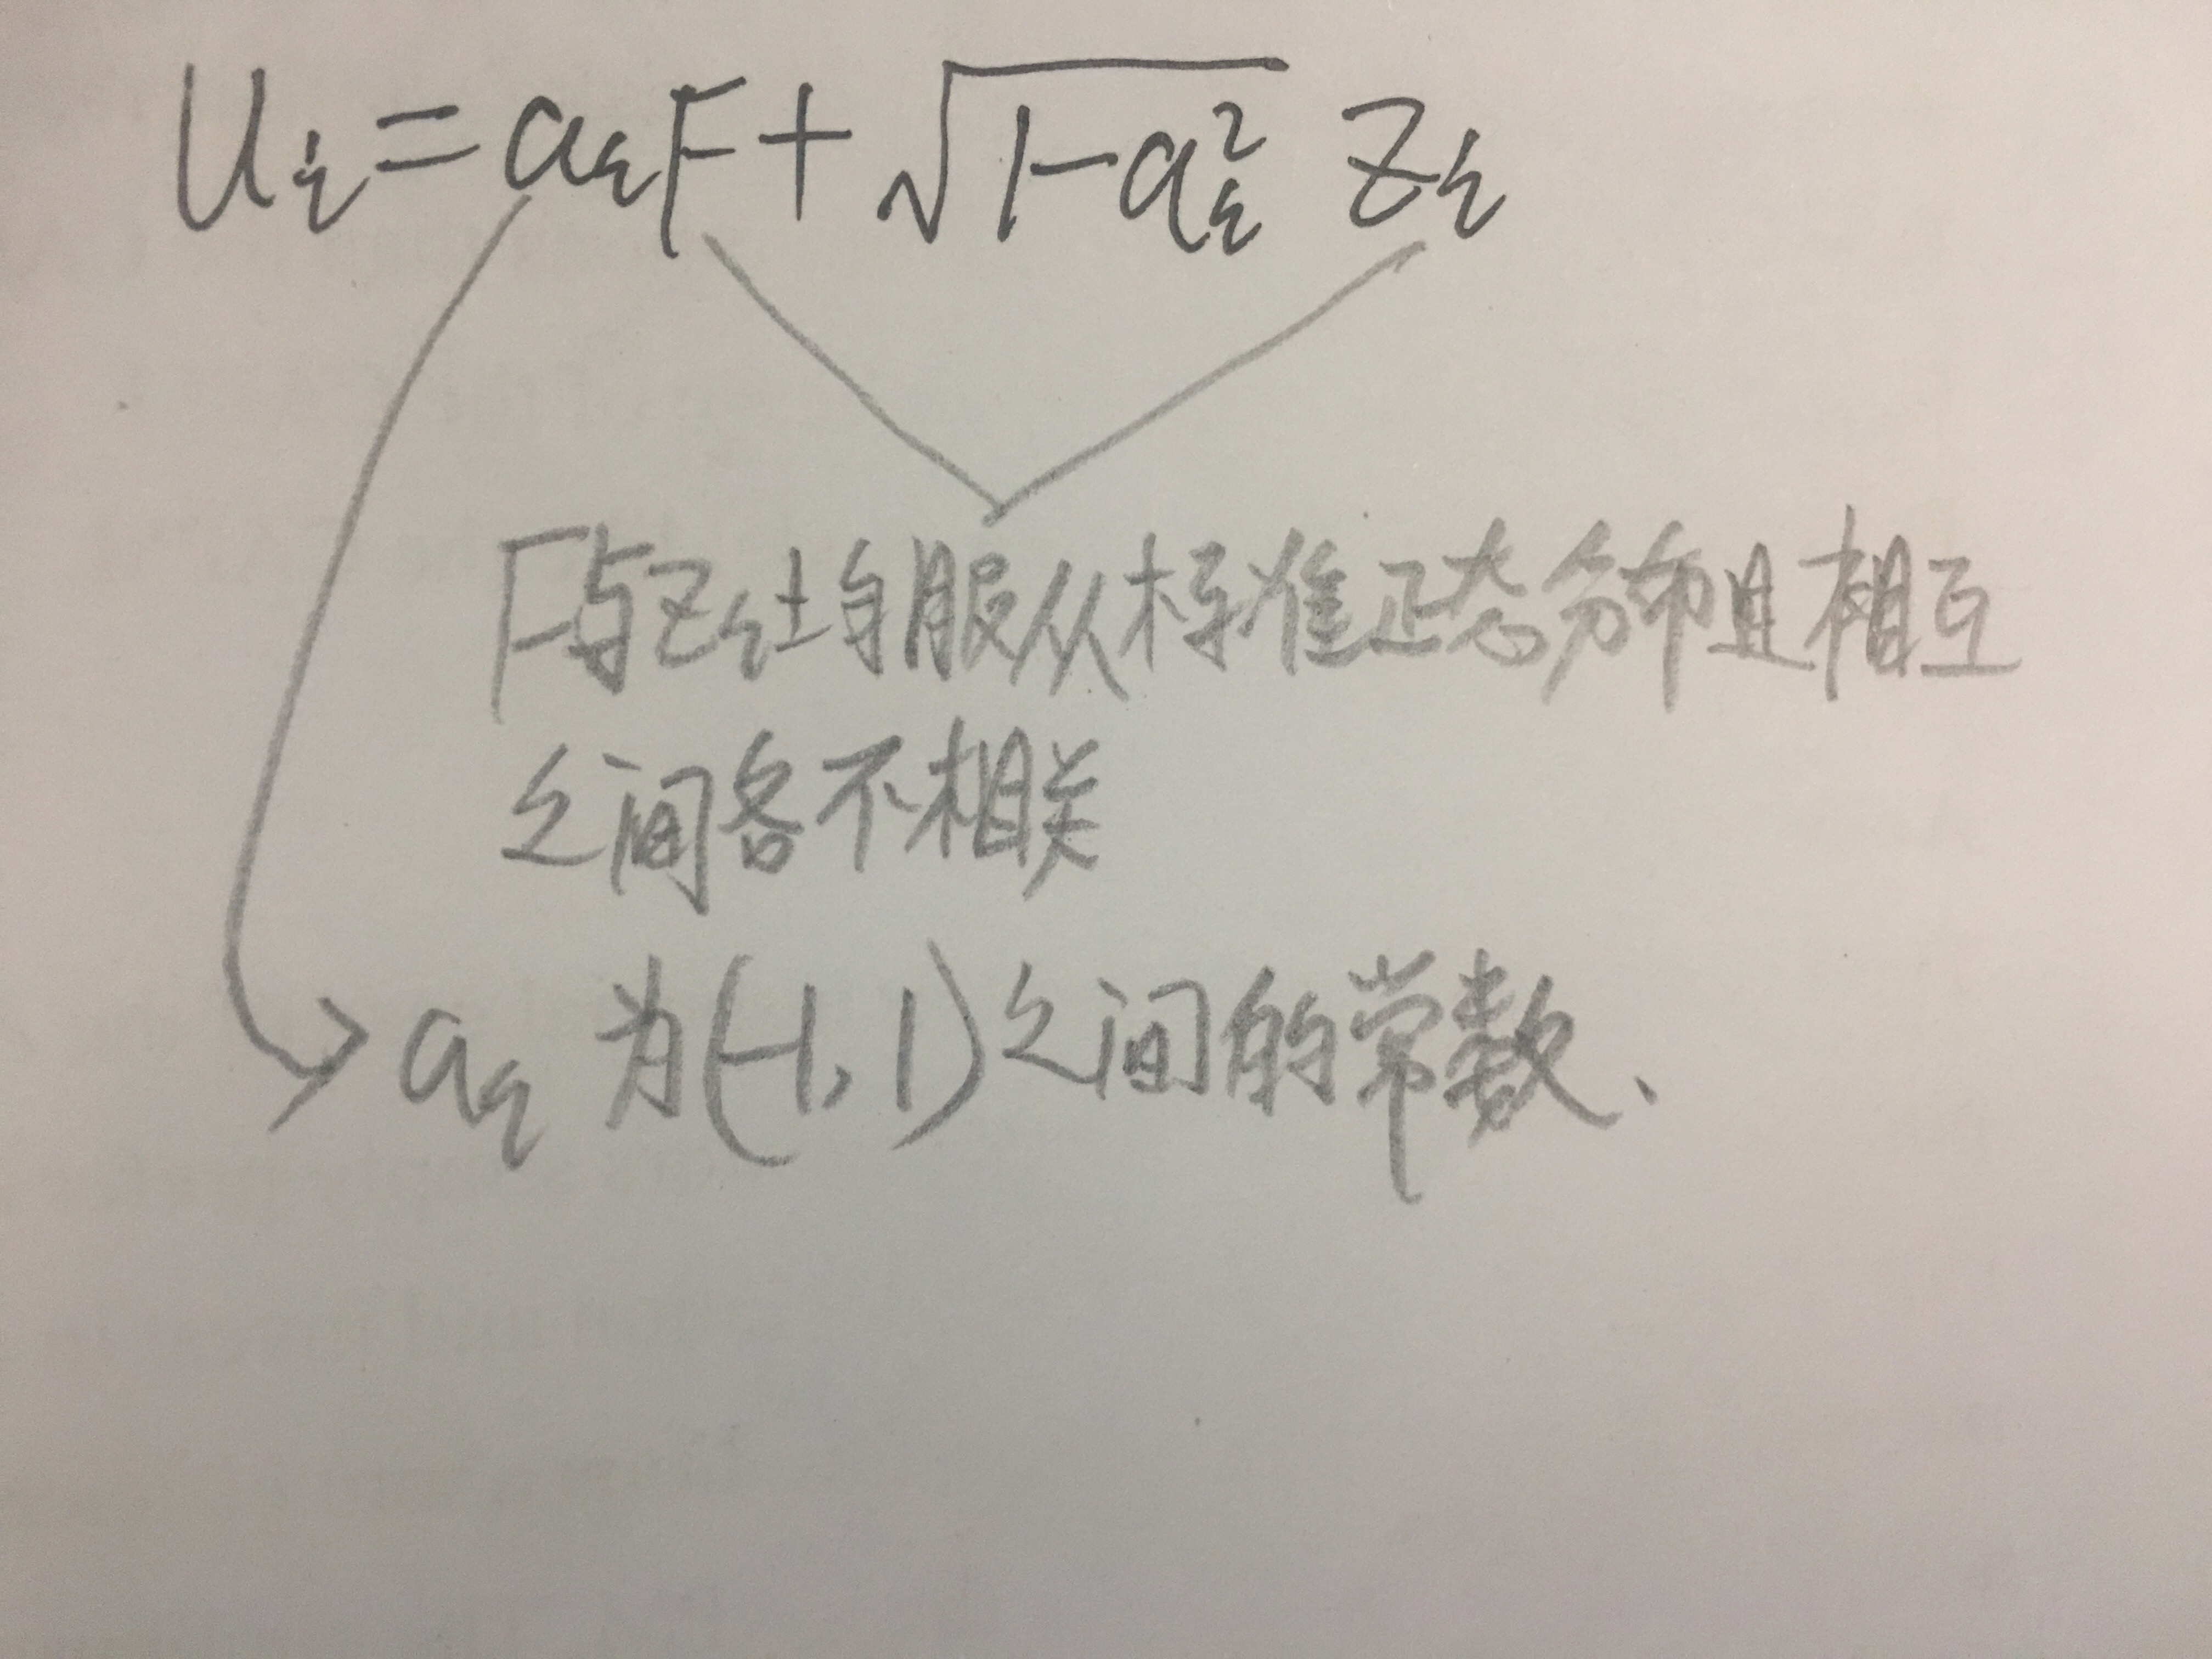 Uᵢ=aᵢF+√(1-aᵢ²) Zᵢ
F与Zᵢ均服从标准正态分布且相互
之间各不相关
aᵢ 为(-1,1)之间的常数、